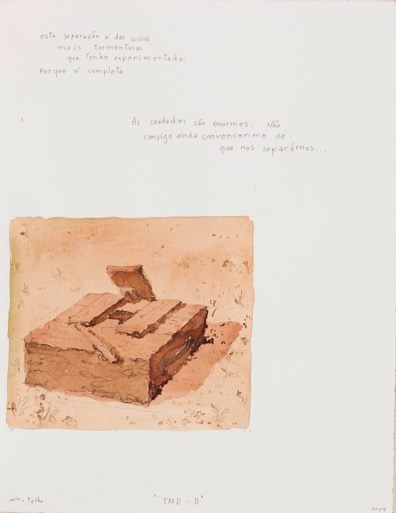 esta separação é das coisas
mais tormentosas
que tenho experimentado.
Porque é completa
As saudades são enormes. Não
consigo ainda convencer-me de
que nos separámos...
"TMD - B"